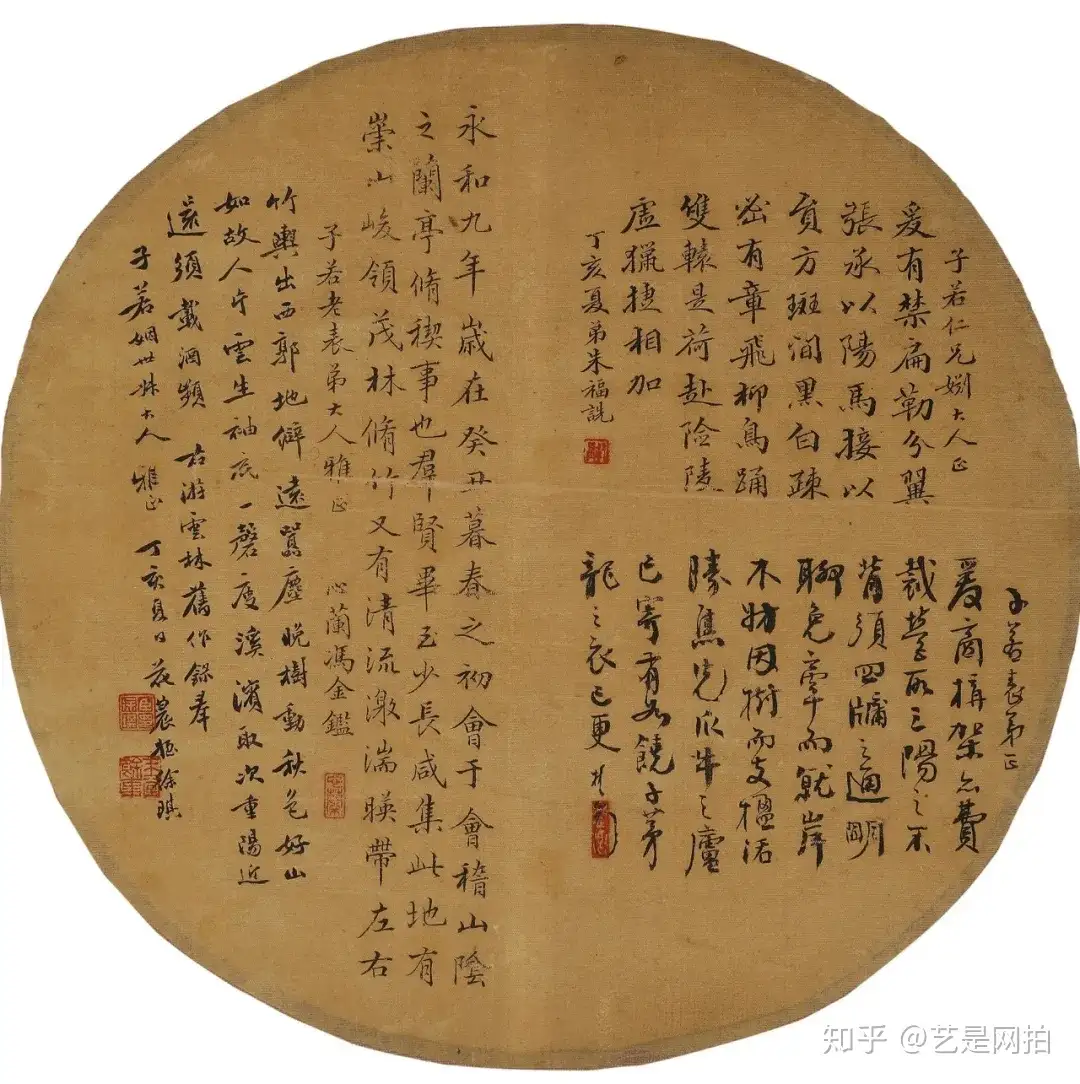 子若仁兄姻大人正
爰有禁扁勒分翼
張承以陽馬接以
員方斑間黑白疎
密有章飛柳鳥踊
雙轅是荷赴險陵
虛獵捷相加
丁亥夏弟朱福詵
子若表弟正
爰商構架忘費
裁營取三陽之不
背須四牖之通明
聊免宇而就岸
不妨因樹而支楹活
陵焦先瓜牛之廬
已寄有如饒子茅
龍之衣已更
永和九年歲在癸丑暮春之初會于會稽山陰
之蘭亭脩稧事也群賢畢至少長咸集此地有
崇山峻領茂林脩竹又有清流激湍暎帶左右
子若老表弟大人雅正
心蘭馮金鑑
竹輿出西郭地僻遠囂塵晚樹動秋色好山
如故人片雲生袖底一磬度溪濱取次重陽近
還須載酒頻
右游雲林舊作錄奉
子若姻世妹大人雅正
丁亥夏日
花農徐琪
知乎 @艺是网拍